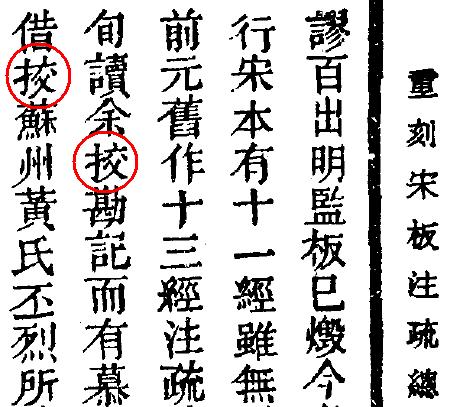 重刻宋板注疏總
謬百出明監板已燬今
行宋本有十一經雖無
前元舊作十三經注疏
旬讀余挍勘記而有慕
借挍蘇州黃氏丕烈所